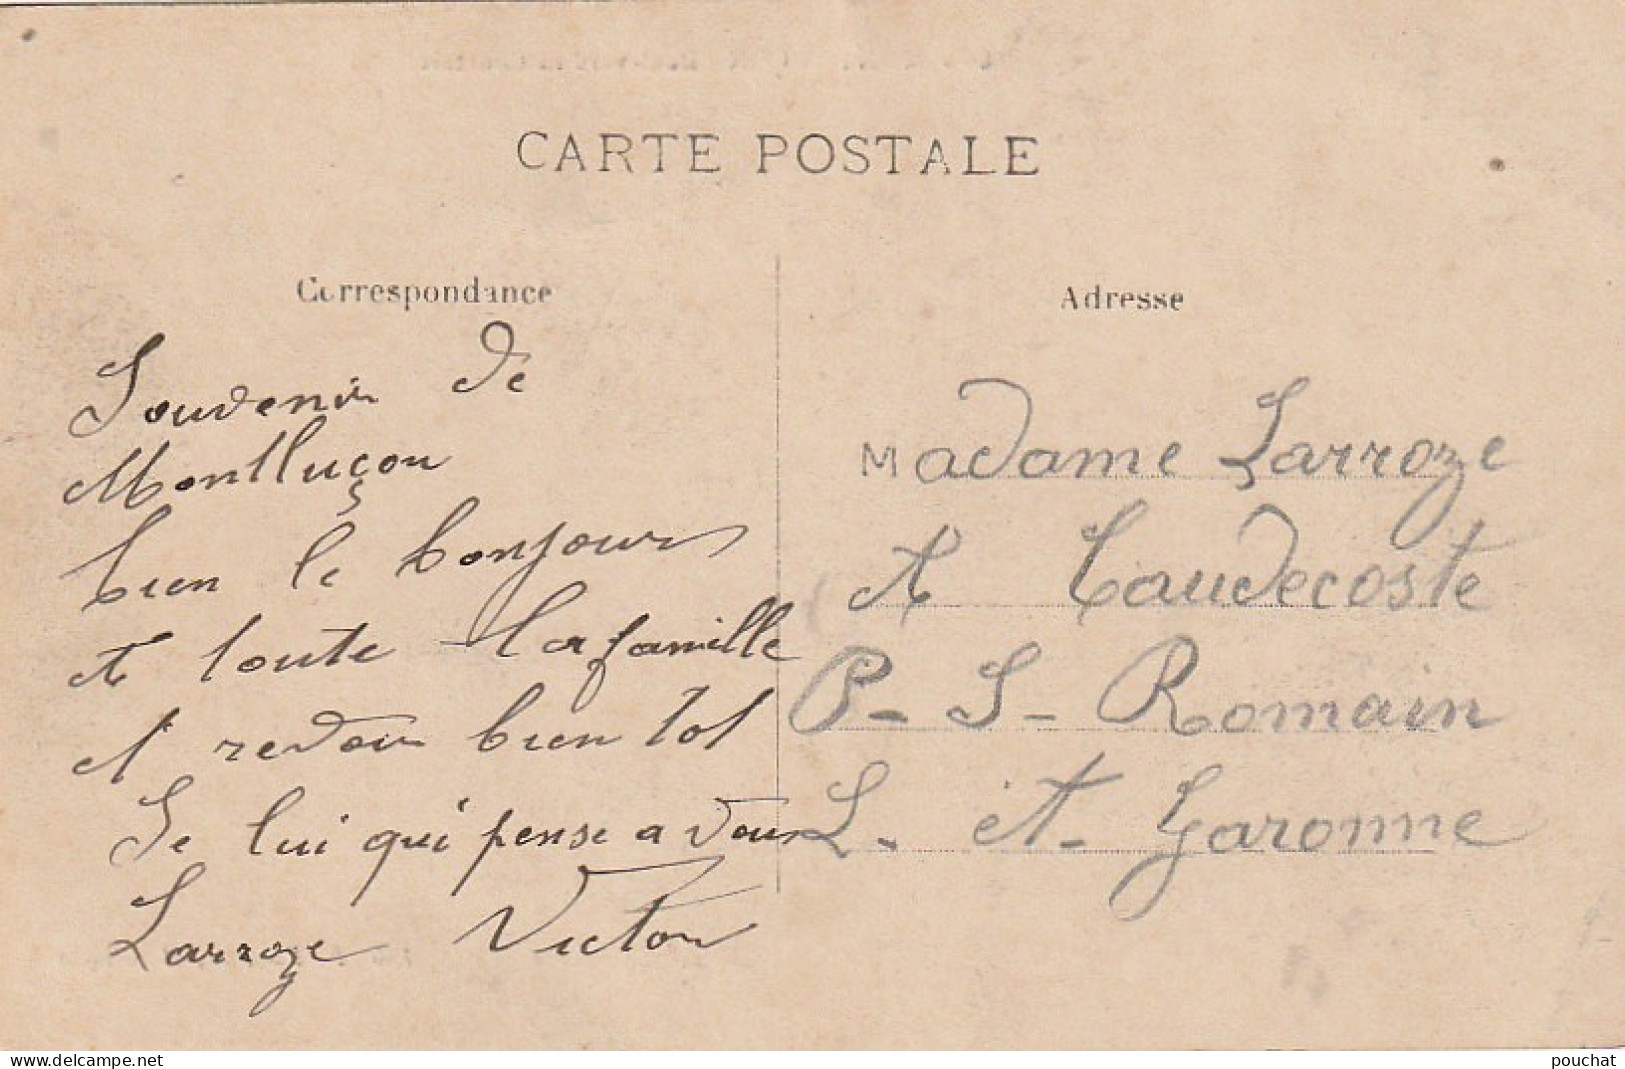 CARTE POSTALE
Correspondance
Souvenir de
Montluçon
bien le bonjours
A toute la famille
A revoir bien tot
Se lui qui pense a vous
Larroze Victor
Adresse
Madame Larroze
A Caudecoste
P. S. Romain
L. et. Garonne
www.delcampe.net
pouchat